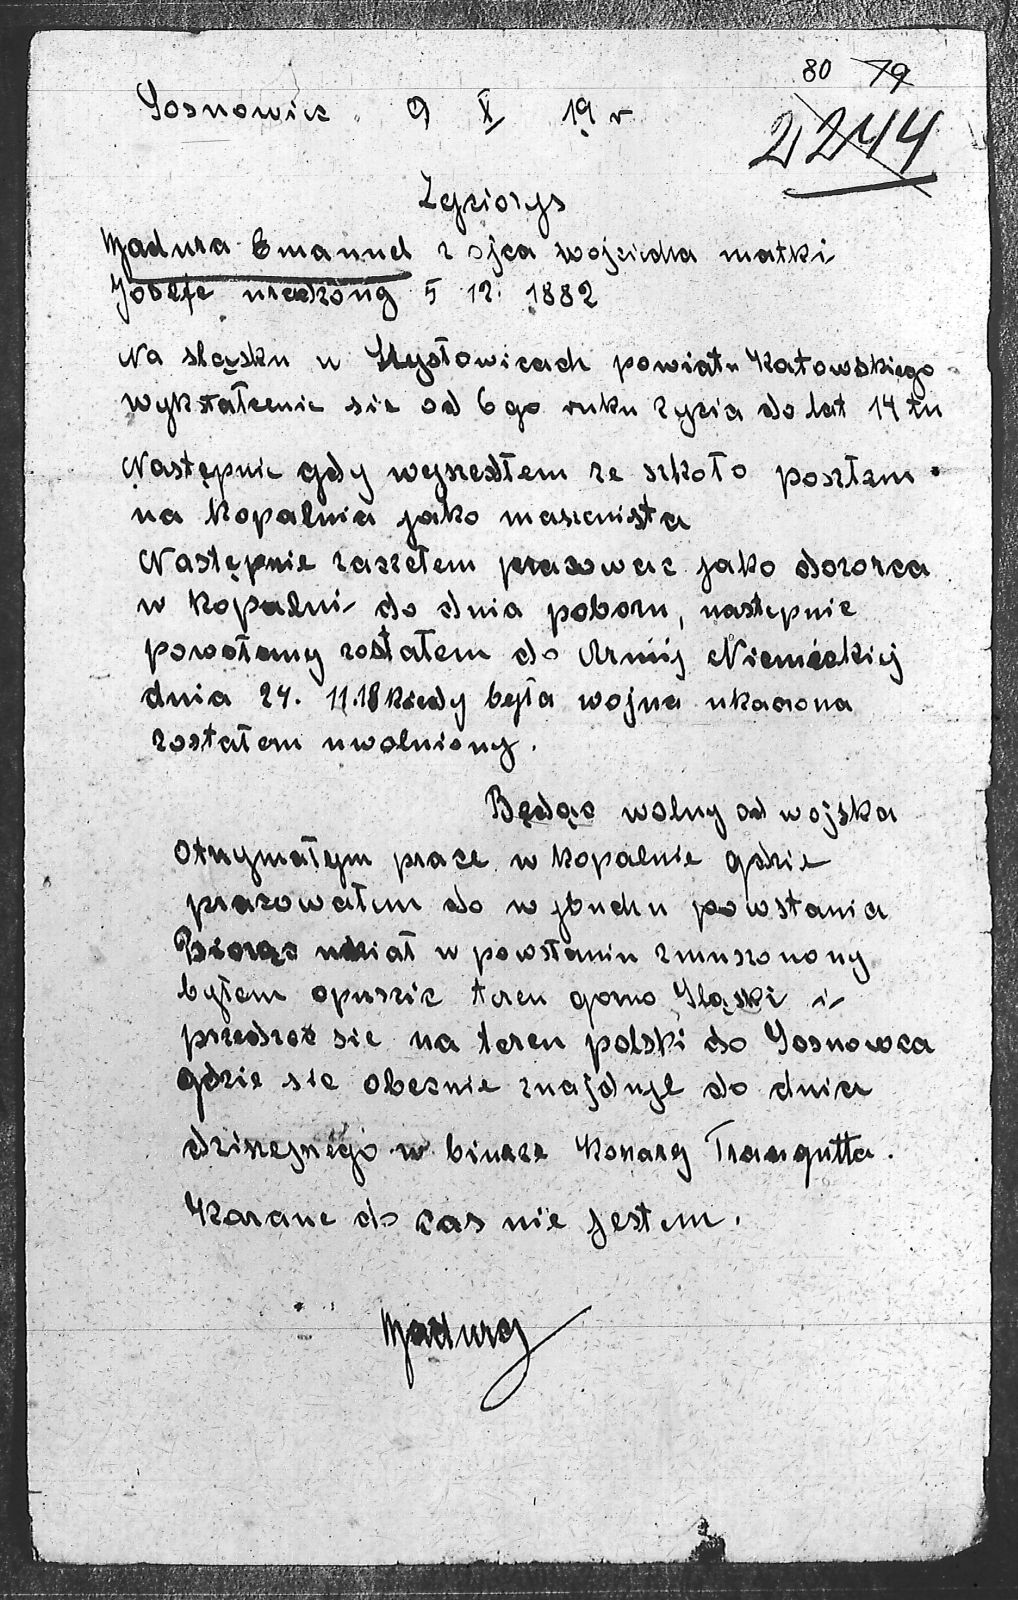 80 79
Sosnowice 9 X 19 r
2244
Zyciorys
Madura Emanuel z ojca wojciecha matki
Jozefe urodzony 5 12. 1882
Na sląsku w Mysłowicach powiatu Katowskiego
wykształcenie sie od 6 go ruku zycia do lat 14 tu
Następnie gdy wyszedłem ze szkoło poszłem
na kopalnia jako maszenista
Następnie zaszełem pracowac jako dozorca
w kopalni do dnia poboru, nastepnie
powołany zostałem do Armij Niemieckiej
dnia 24. 11.18 kiedy była wojna ukaczona
zostałem uwolniony.
Będąc wolny od wojska
otrzymałym prace w kopalnie gdzie
pracowałem do wybuchu powstania
Biorąc udział w powstaniu zmuszonony
byłem opuszic teren gorno Sląski i
przedrzec sie na teren polski do Sosnowca
gdzie sie obecnie znajduje do dnia
dzisiejnego w biurze Konary Traugutta.
Karane do czas nie jestem.
Madura